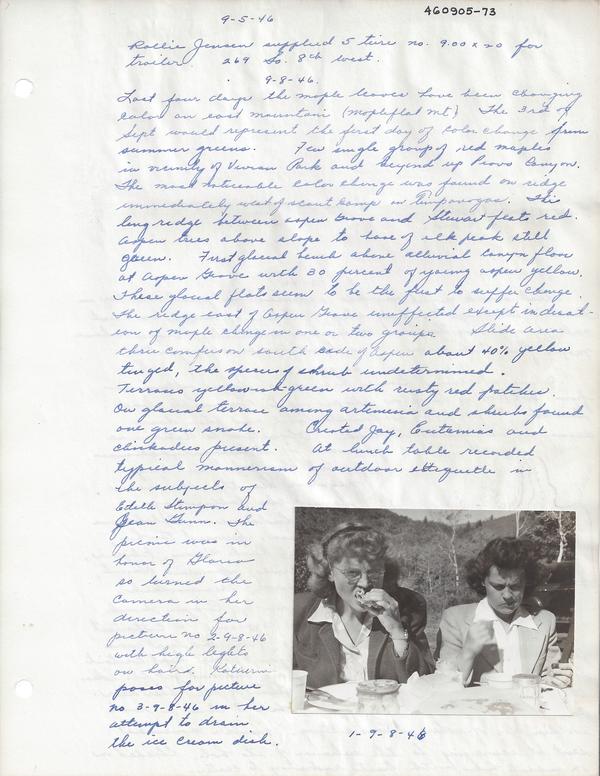 9-5-46
460905-73
Rollie Jensen supplied 5 tire no. 9.00 x 20 for
trailer. 269 So. 8th West.
9-8-46.
Last four days the maple leaves have been changing
color on east mountain (Mapleflat Mt.) The 3rd of
Sept would represent the first day of color change from
summer greens. Few single group of red maples
in vicinity of Vivian Park and beyond up Provo Canyon.
The most noticeable color change was found on ridge
immediately west of scout camp on Timpanogas. The
long ridge between aspen Grove and Stewart flats red.
Aspen trees above slope to base of elk peak still
green. First glacial bench above alluvial canyon floor
at Aspen Grove with 30 percent of young aspen yellow.
These glacial flats seem to be the first to suffer change.
The ridge east of Aspen Grove unaffected except in
ion of maple change in one or two groups. Slide area
thru conifers on south side of Aspen about 40% yellow
tinged, the species of shrub undetermined.
Terrain yellowish-green with rusty red patches.
On glacial terrace among artemesia and shrubs found
one green snake. Crested Jay, Eutamias and
chickadees present. At lunch table recorded
typical mannerism of outdoor etiquette in
the subjects of
Edith Stimpson and
Jean Gunn. The
picnic was in
honor of Gloria
so turned the
camera in her
direction for
picture no 2-9-8-46
with high lights
on hair. Katherine
poses for picture
no 3-9-8-46 in her
attempt to drain
the ice cream dish.
1-9-8-46